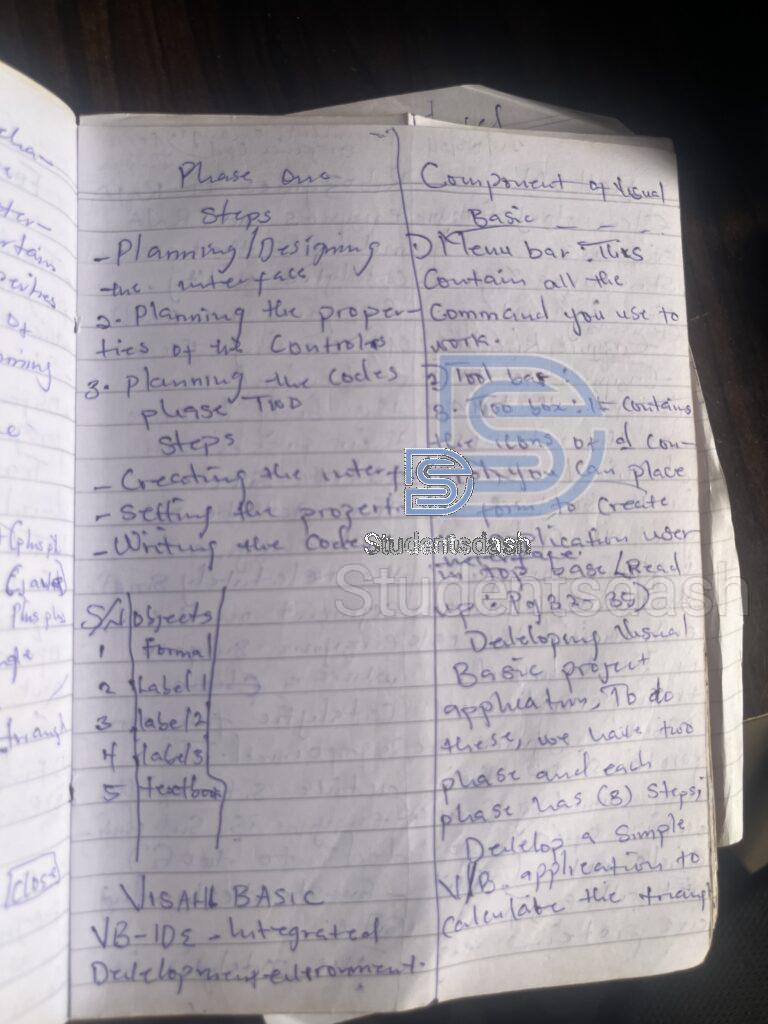 Phase one
Steps
- Planning/Designing
the interface
2. Planning the proper-
ties of the Controls
3. planning the Codes
phase Two
Steps
- Creating the interf
- Setting the properti
- Writing the Code
S/N Objects
1 Forma
2 Label 1
3 label 2
4 label 3
5 textbox
VISAUL BASIC
VB-IDE - Integrated
Development
Component of Visual
Basic
1) Menu bar: This
Contain all the
Command you use to
work.
2) Tool bar:
3. Too box: It Contains
the icons of all Con-
you Can place
form to Create
application user
interface.
(Read
up: Pg 32-35)
Developing Visual
Basic project
application, To do
these, we have two
phase and each
phase has (3) Steps;
Develop a Simple
V/B. application to
Calculate the triang
Studentsdash
Studentsdash
Close